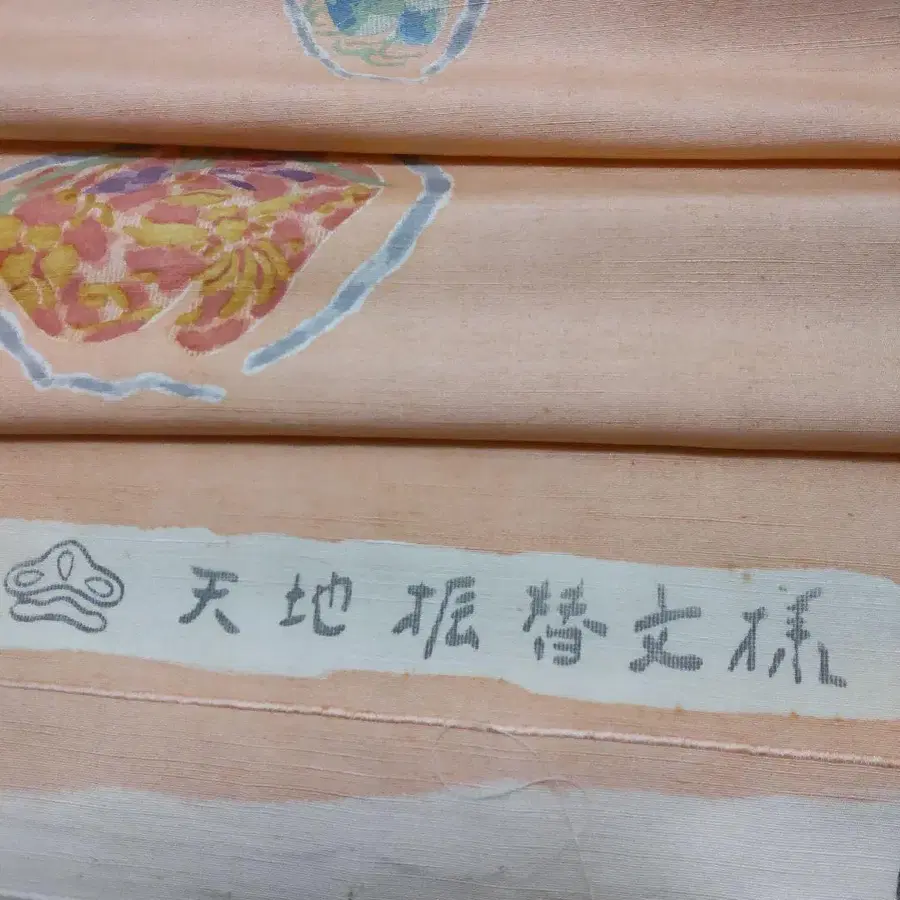 天地振替文様